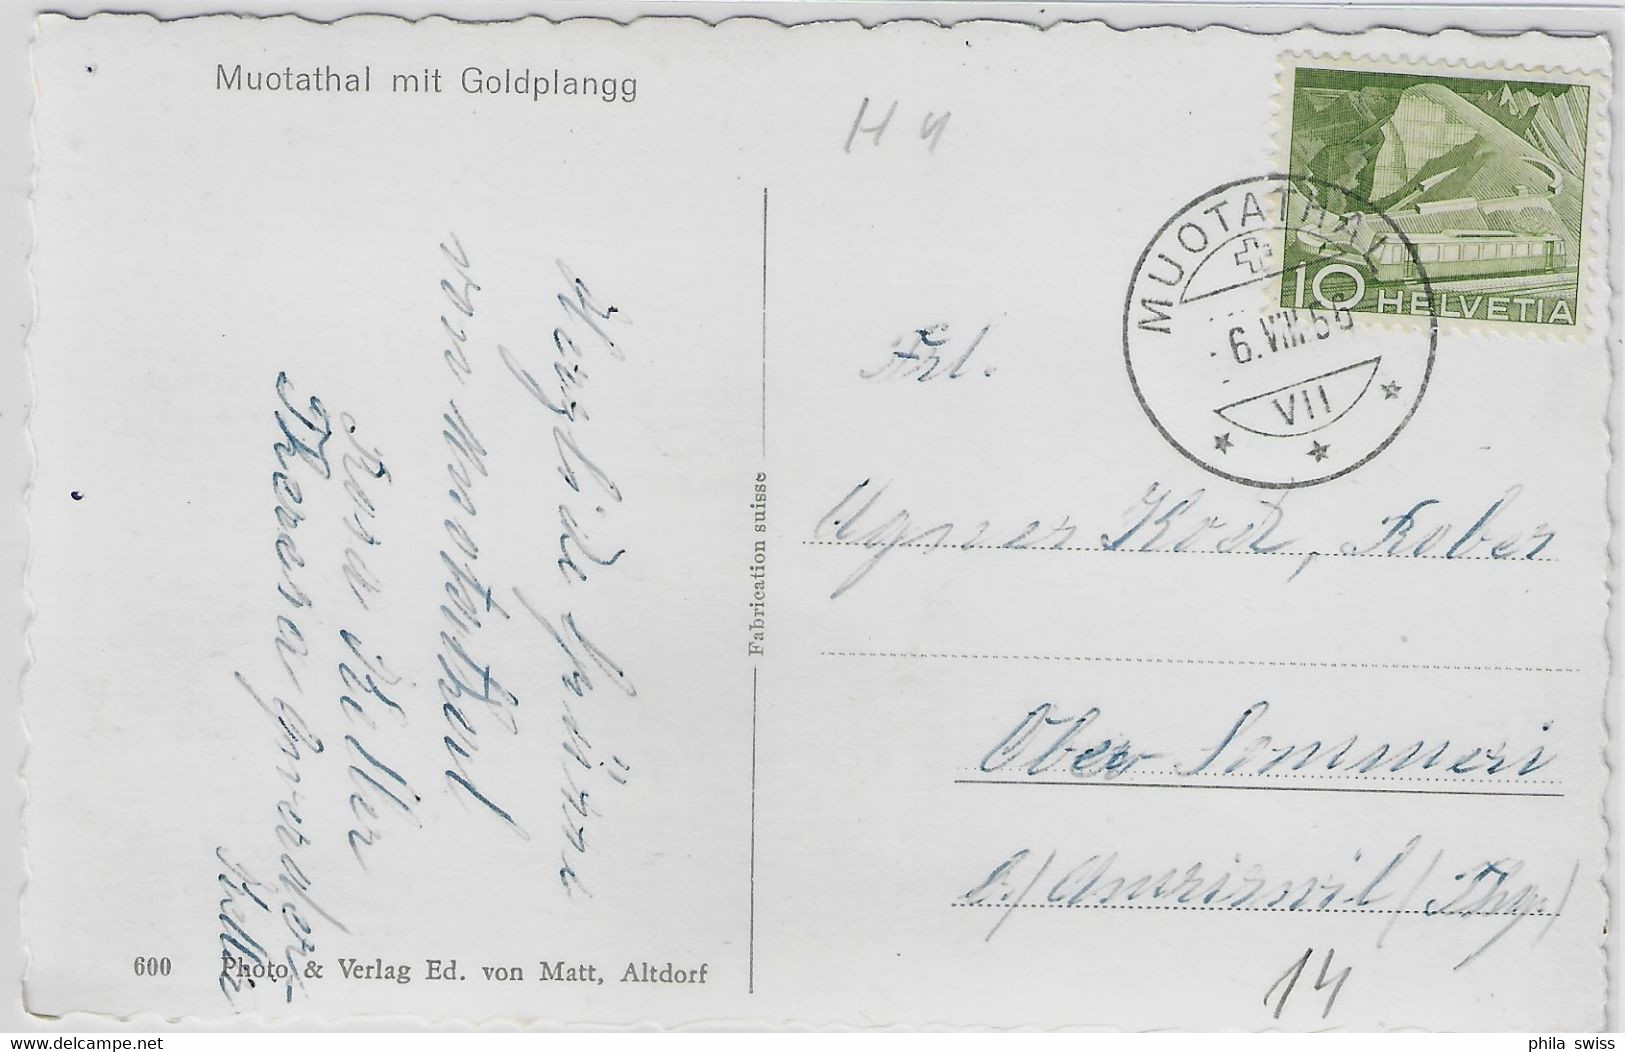 Muotathal mit Goldplangg
H 4
10 HELVETIA
MUOTATHAL
6.VIII.56
VII
Herzliche Grüsse
von Muotathal
Rosa Keller
Theresa
Keller
Frl.
Agnes Koch,
Ober Sommeri
b/Amriswil (Thg.)
14
Fabrication suisse
600 Photo & Verlag Ed. von Matt, Altdorf
delcampe.net
phila swiss